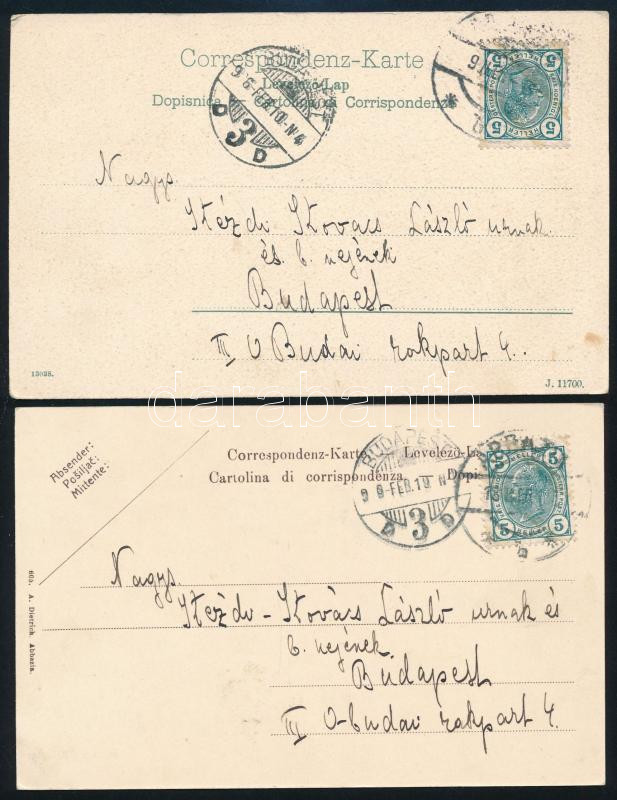 Correspondenz-Karte
Levelező-Lap
Dopisnica Cartolina di Corrispondenza
5 5
HELLER
5 5
9 6-FEB.10-N4
D 3 D
Nagys.
Kézdi Kovács László urnak
és b. nejének
Budapest
III O Budai rakpart 4.
13028.
J. 11700.
darabanth
Absender:
Pošiljač:
Mittente:
Correspondenz-Karte Levelező-La
Cartolina di corrispondenza. Dopi
BUDAPEST
9 8-FEB.10 N
D 3 D
5 5
HELLER
5 5
605. A. Dietrich. Abbazia.
Nagys.
Kézdi-Kovács László urnak és
b. nejének
Budapest
III O-budai rakpart 4.